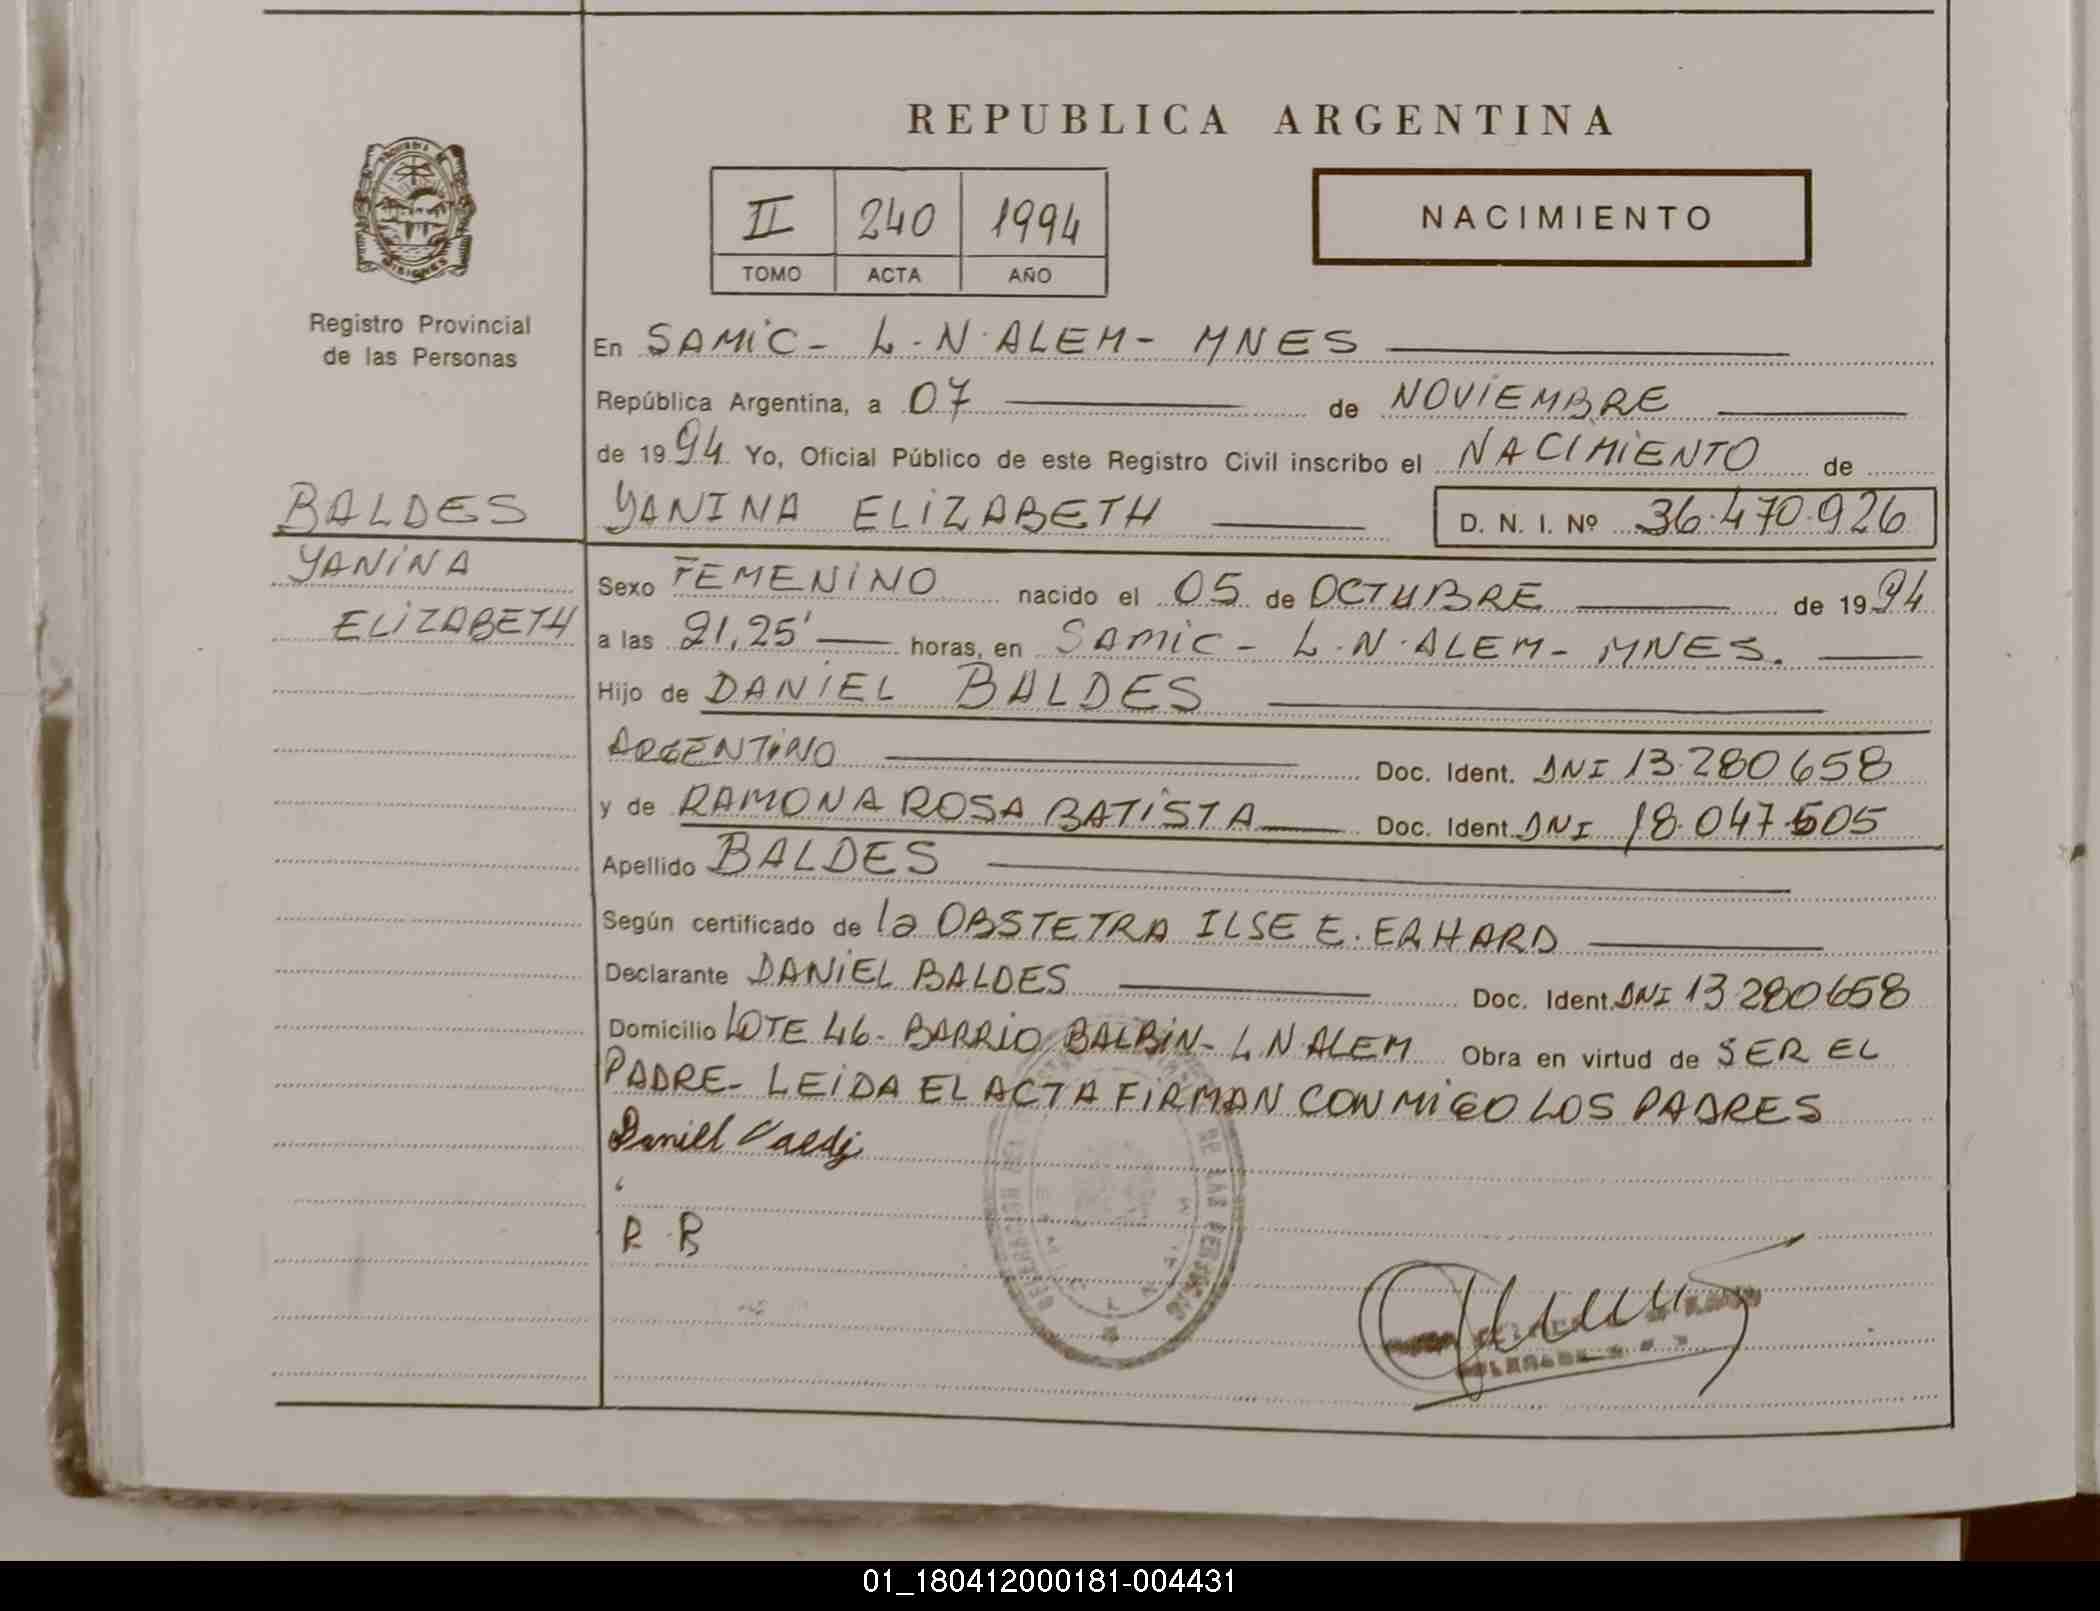 REPUBLICA ARGENTINA
II 240 1994
TOMO ACTA AÑO
NACIMIENTO
Registro Provincial
de las Personas
En SAMIC - L.N. ALEM - MNES
República Argentina, a 07 de NOVIEMBRE
de 1994 Yo, Oficial Público de este Registro Civil inscribo el NACIMIENTO de
BALDES YANINA ELIZABETH D. N. I. Nº 36.470.926
YANINA
ELIZABETH
Sexo FEMENINO nacido el 05 de OCTUBRE de 1994
a las 21,25' horas, en SAMIC - L.N. ALEM - MNES.
Hijo de DANIEL BALDES
ARGENTINO Doc. Ident. DNI 13.280658
y de RAMONA ROSA BATISTA Doc. Ident. DNI 18.047.505
Apellido BALDES
Según certificado de la OBSTETRA ILSE E. ERHARD
Declarante DANIEL BALDES Doc. Ident. DNI 13280658
Domicilio LOTE 46 - BARRIO BALBIN - L N ALEM Obra en virtud de SER EL
PADRE - LEIDA EL ACTA FIRMAN CONMIGO LOS PADRES
Daniel
R B
01_180412000181-004431